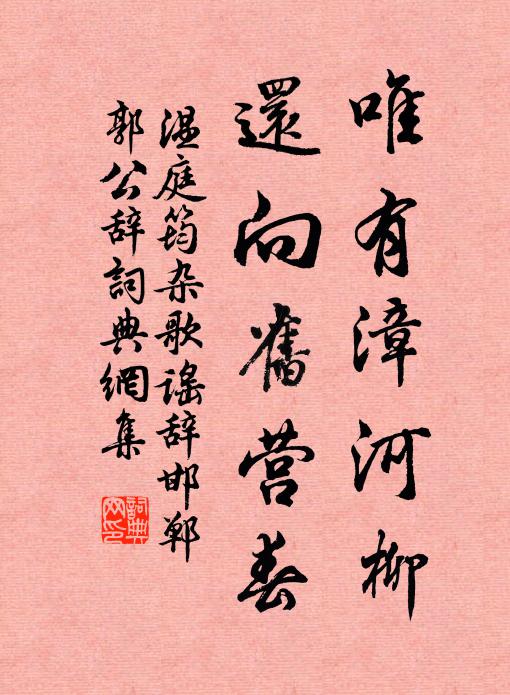 唯有漳河柳
還向舊营春
温庭筠杂歌谣辞邯郸
郭公辞詞典網集
詞典网印